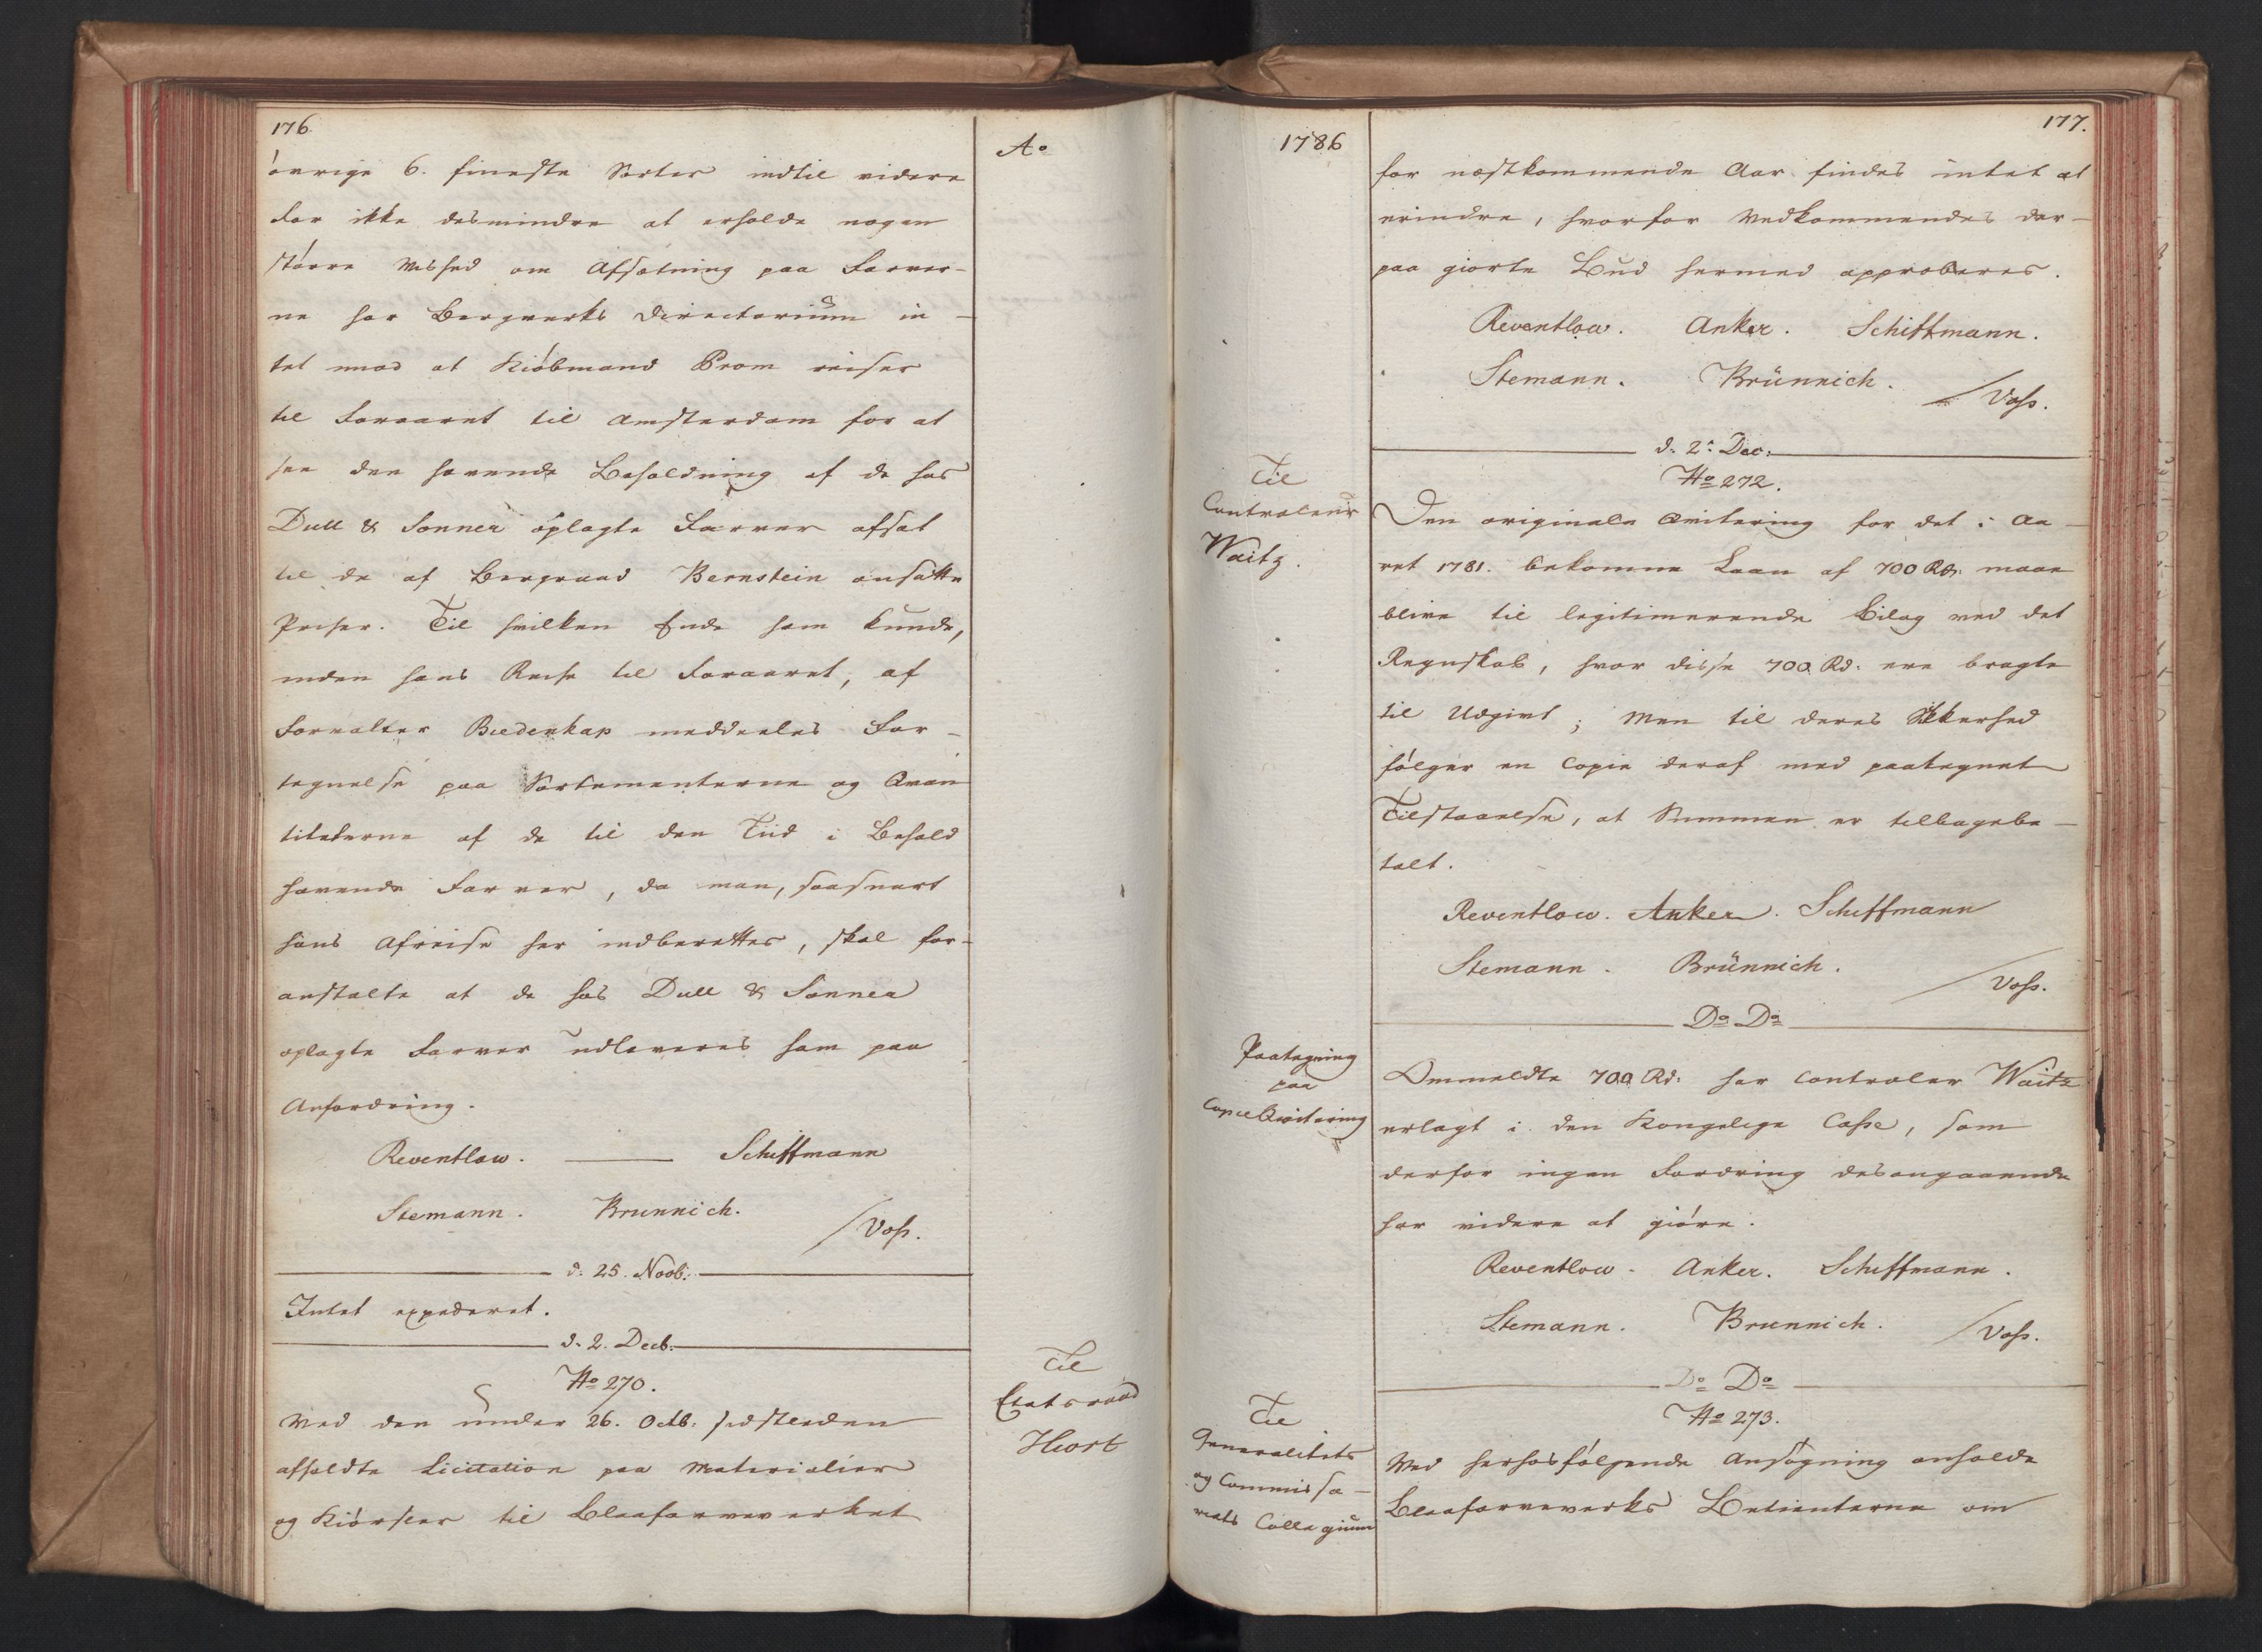 176.
A°
övrige 6. fineste Sorter indtil videre
For ikke desmindre at erholde nogen
större Vished om Afsætning paa Farver-
ne har Bergverks Directorium in-
tet mod at Kiöbmand Brom reiser
til Foraaret til Amsterdam for at
see den havende Beholdning af de hos
Dull & Sonner oplagte Farver afsat
til de af Bergraad Bernstein ansatte
Priser. Til hvilken Ende ham kunde,
inden hans Reise til Foraaret, af
Forvalter Biedenkap meddeeles For-
tegnelse paa Sortementerne og Qvan
titeterne af de til den Tiid i Behold
havende Farver, da man, saasnart
hans Afreise her indberettes, skal for-
anstalte at de hos Dull & Sonner
oplagte Farver udleveres ham paa
Anfordring.
Reventlow. Schiffmann
Stemann. Brunnich.
/Voss.
d: 25. Novb:
Intet expederet.
d. 2. Decb.
No 270.
Til
Etatsraad
Hiort
Ved den under 26. Octb: sidstleden
afholdte Licitation paa Materialier
og Kiörsler til Blaafarveverket
1786
177.
for nestkommende Aar findes intet at
erindre, hvorfor Vedkommendes der-
paa giorte Bud hermed approberes.
Reventlow. Anker. Schiffmann.
Stemann. Brünnich.
/Voss.
d. 2: Dec:
No 272.
Til
Controleur
Waitz.
Den originale Qvitering for det i Aa-
ret 1781. bekomne Laan af 700 Rd: maae
blive til legitimerende Bilag ved det
Regnskab, hvor disse 700 Rd: ere bragte
til Udgivt; Men til deres Sikkerhed
fölger en Copie deraf med paategnet
Tilstaaelse, at Summen er tilbagebe-
talt.
Reventlow. Anker. Schiffmann
Stemann. Brünnich.
/Voss.
Do Do
Paategning
paa
Copie Qvitering
Ommeldte 700 Rd: har Controler Waitz
erlagt i den Kongelige Casse, som
derfor ingen Fordring desangaaende
har videre at giöre.
Reventlow. Anker. Schiffmann.
Stemann. Brunnich.
/Voss.
Do Do
No 273.
Til
Generalitets
og Commissa-
riats Collegium
Ved herhosfölgende Ansögning anholde
Blaafarveverks Betienterne om